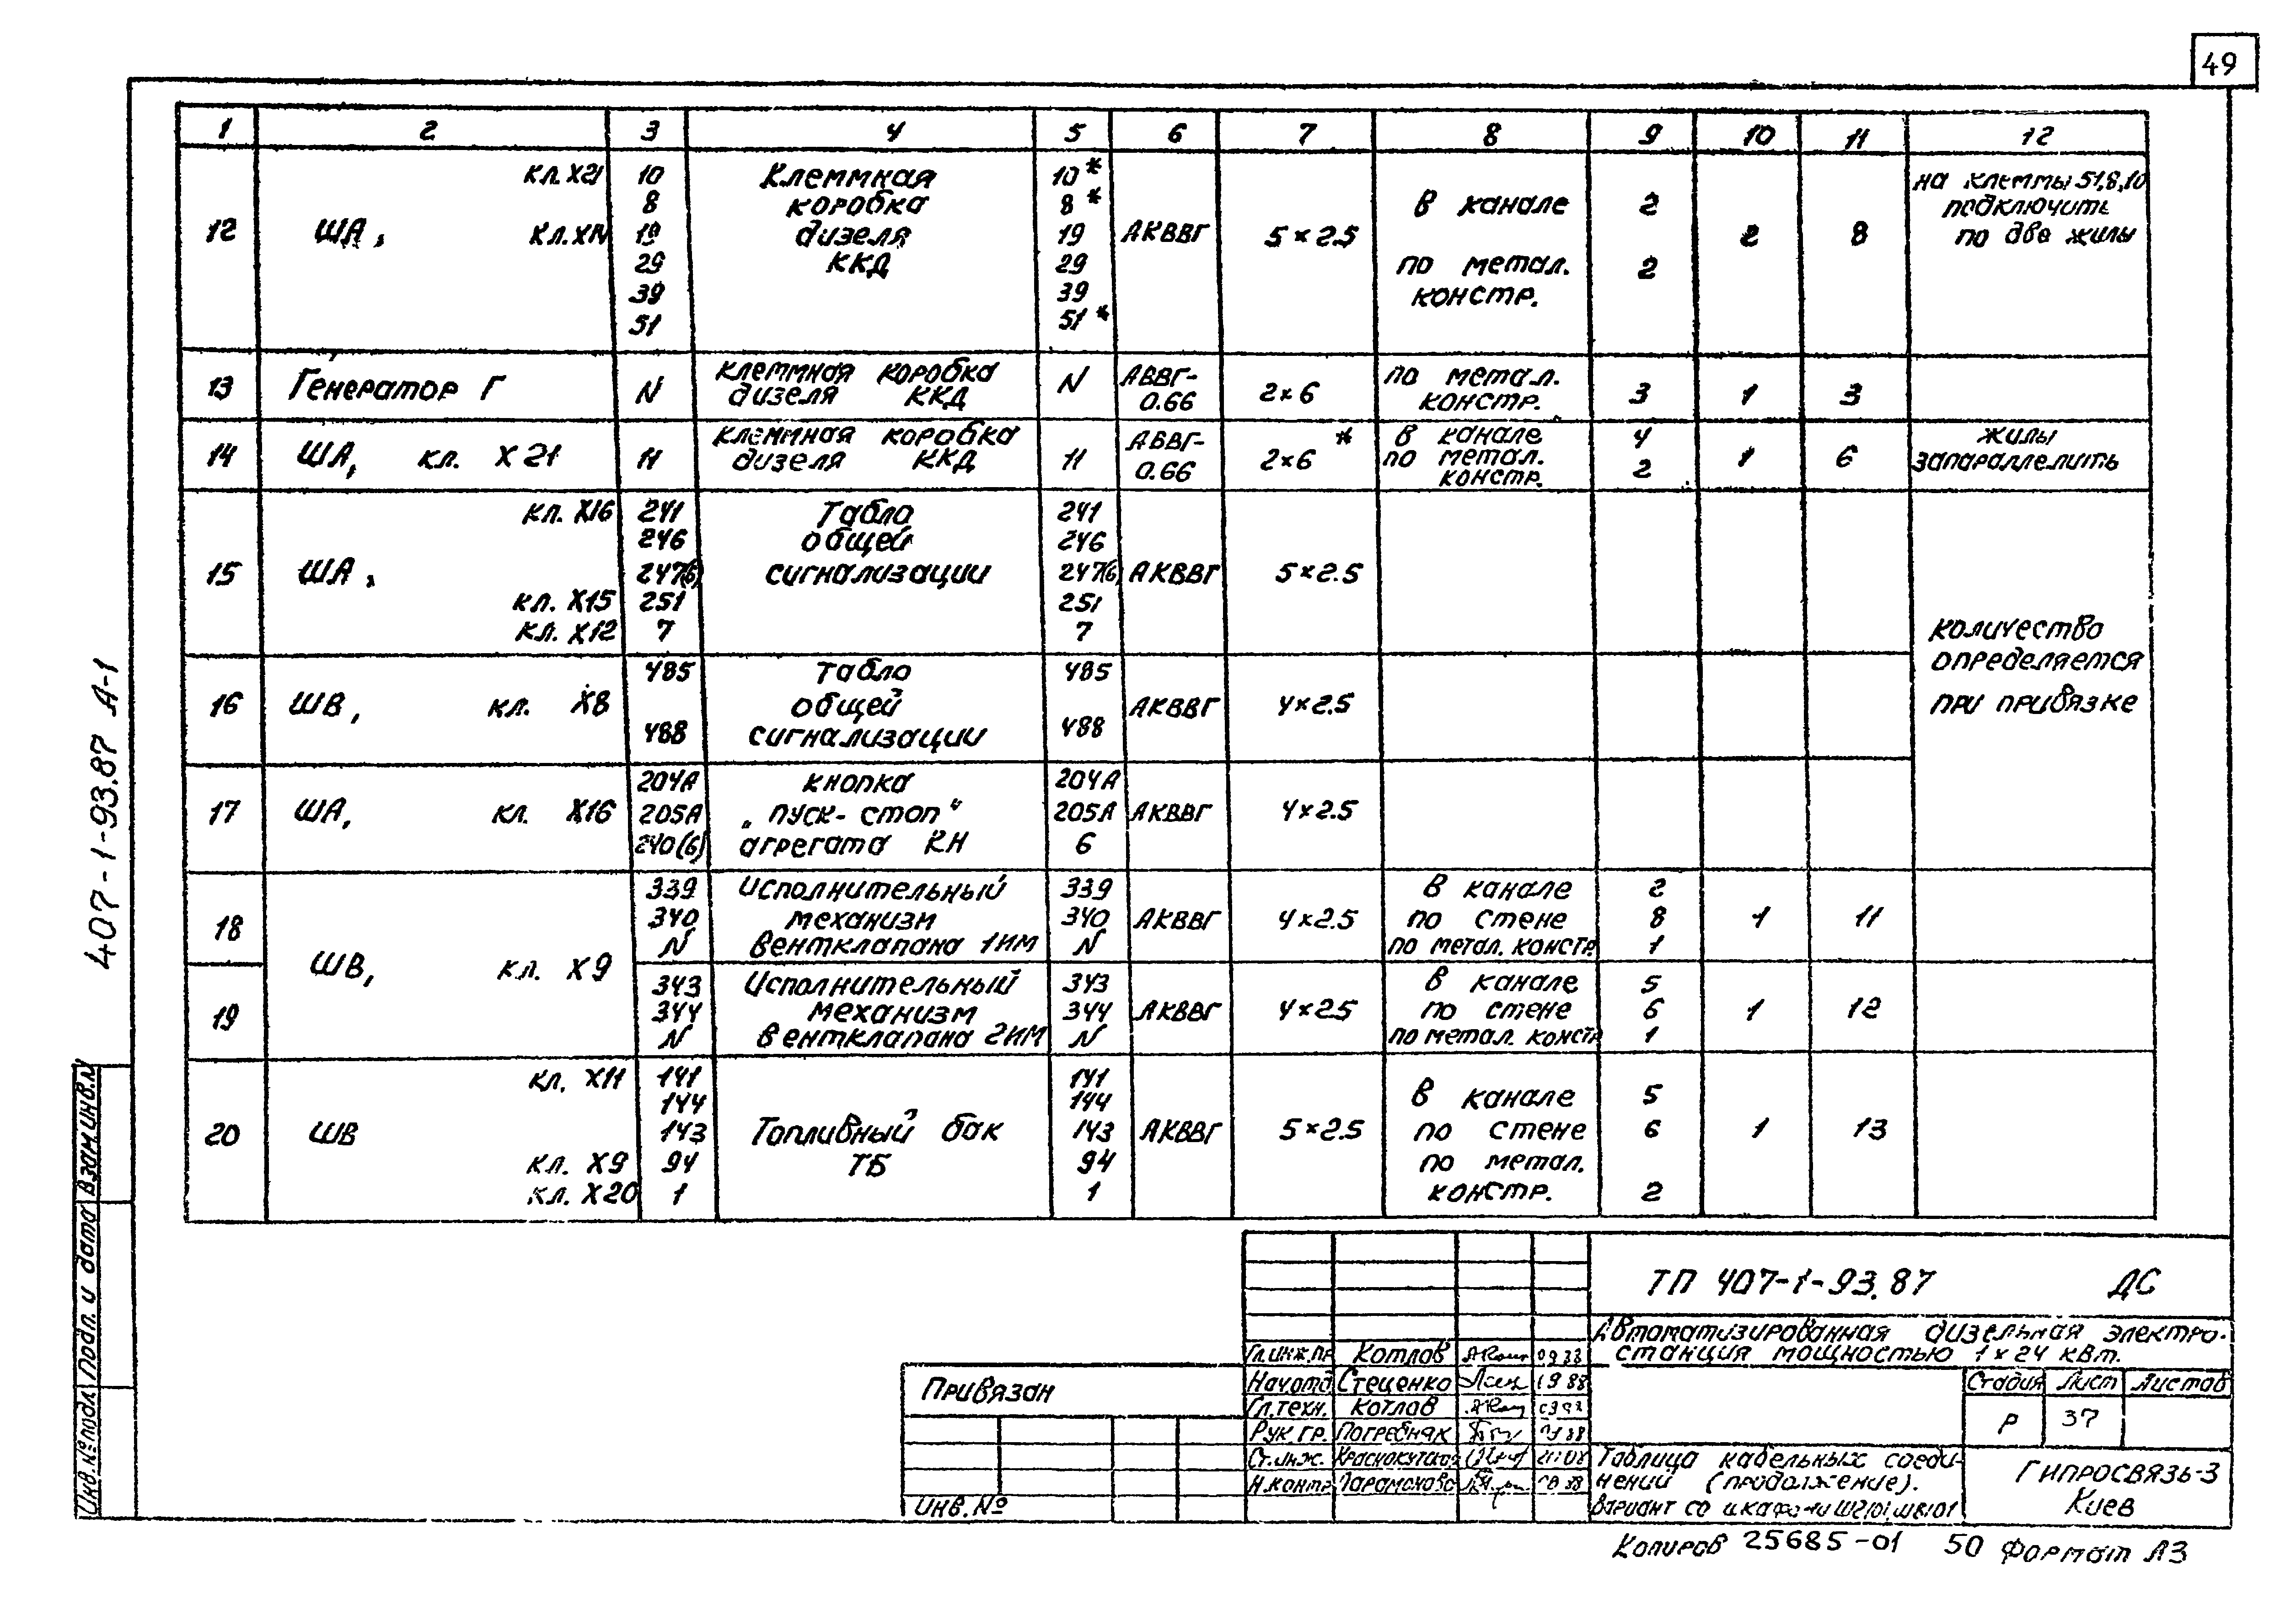 49
1 2 3 4 5 6 7 8 9 10 11 12
12 ША, кл. X21 кл. XIV
10
8
19
29
39
51
Клеммная
коробка
дизеля
ККД
10*
8*
19
29
39
51*
АКВВГ 5×2.5
в канале 2
по метал. 2
констр.
2 8
на клеммы 51,8,10
подключить
по две жилы
13 Генератор Г N
клеммная коробка
дизеля ККД
N
АВВГ-
0.66
2×6
по метал.
констр.
3 1 3
14 ША, кл. X21 11
клеммная коробка
дизеля ККД
11
АВВГ-
0.66
2×6 *
в канале 4
по метал. 2
констр.
1 6
жилы
запараллелить
15 ША,
кл. X16 241
246
247(6)
кл. X15 251
кл. X12 7
Табло
общей
сигнализации
241
246
247(6)
251
7
АКВВГ 5×2.5
количество
определяется
при привязке
16 ШВ, кл. X8
485
488
табло
общей
сигнализации
485
488
АКВВГ 4×2.5
17 ША, кл. X16
204А
205А
240(6)
кнопка
„пуск-стоп"
агрегата КН
204А
205А
6
АКВВГ 4×2.5
18 ШВ, кл. X9
339
340
N
Исполнительный
механизм
вентклапана 1ИМ
339
340
N
АКВВГ 4×2.5
в канале 2
по стене 8
по метал. констр. 1
1 11
19
343
344
N
Исполнительный
механизм
вентклапана 2ИМ
343
344
N
АКВВГ 4×2.5
в канале 5
по стене 6
по метал. констр 1
1 12
20 ШВ
кл. X11 141
144
143
кл. X9 94
кл. X20 1
Топливный бак
ТБ
141
144
143
94
1
АКВВГ 5×2.5
в канале 5
по стене 6
по метал.
констр. 2
1 13
407-1-93.87 А-1
Инв.№подл. Подп. и дата Взам.инв.N
ТП 407-1-93.87 ДС
Автоматизированная дизельная электро-
станция мощностью 1×24 кВт.
Гл.инж.пр Котлов
Нач.отд Стеценко
Гл.техн. Котлов
Рук.гр. Погребняк
Ст.инж.
Н.контр.
Привязан
Инв.№
Стадия Лист Листов
Р 37
Таблица кабельных соеди-
нений (продолжение).
Вариант со шкафами
Гипросвязь-3
Киев
Копиров 25685-01 50 Формат А3